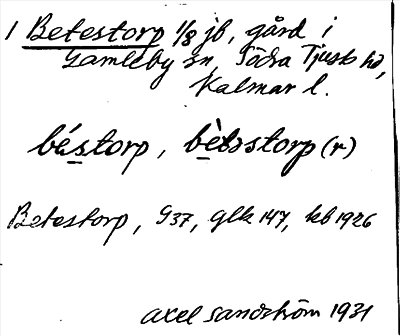 1 Betestorp 1/8 jb, gård i
Gamleby sn, Södra Tjust hd,
Kalmar l.
béstorp, bètəstorp (r)
Betestorp, G37, glk 147, kb 1926
Axel Sandström 1931